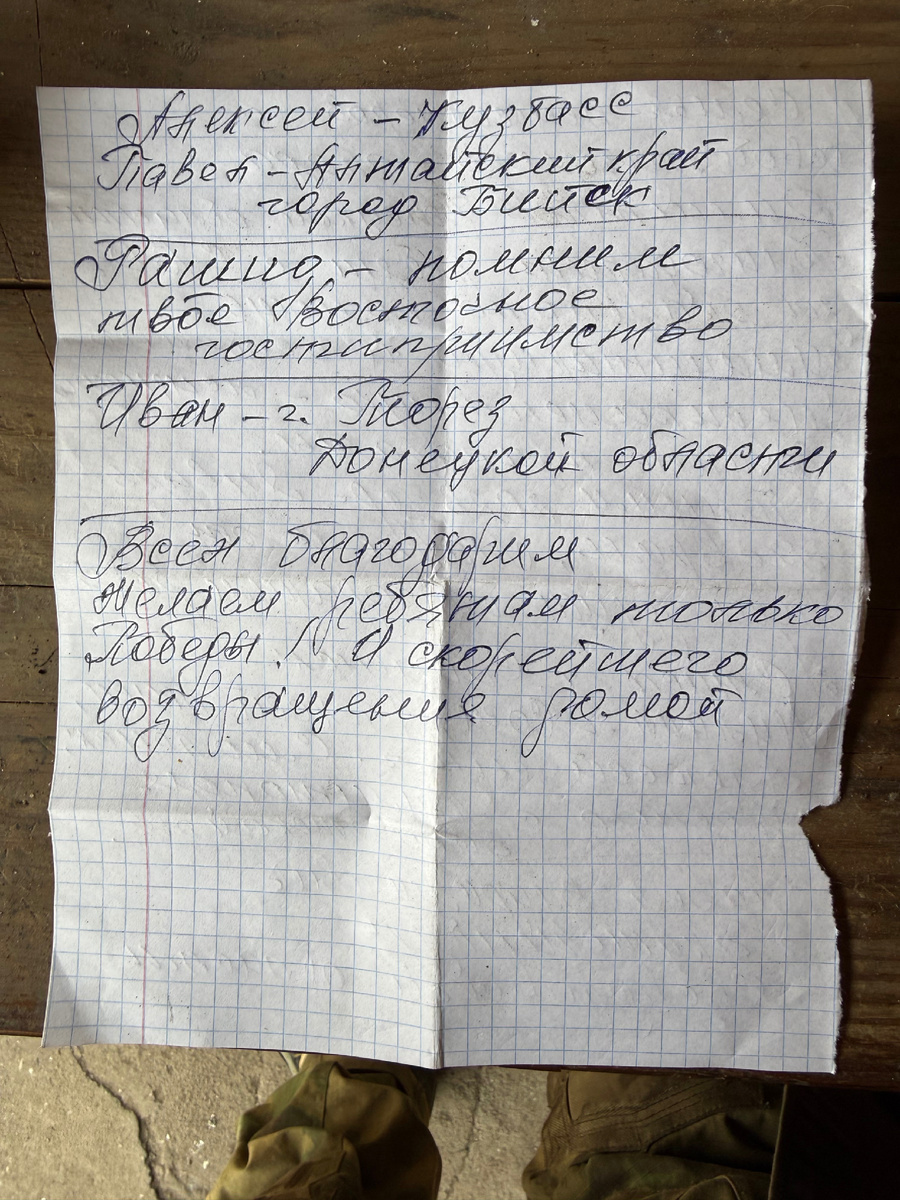 Алексей - Кузбасс
Павел - Алтайский край
город Бийск
Рашид - помним
твоё восточное
гостиприимство
Иван - г. Торез
Донецкой области
Всем благодарим
Желаем ребятам только
Победы! И скорейшего
возвращения домой